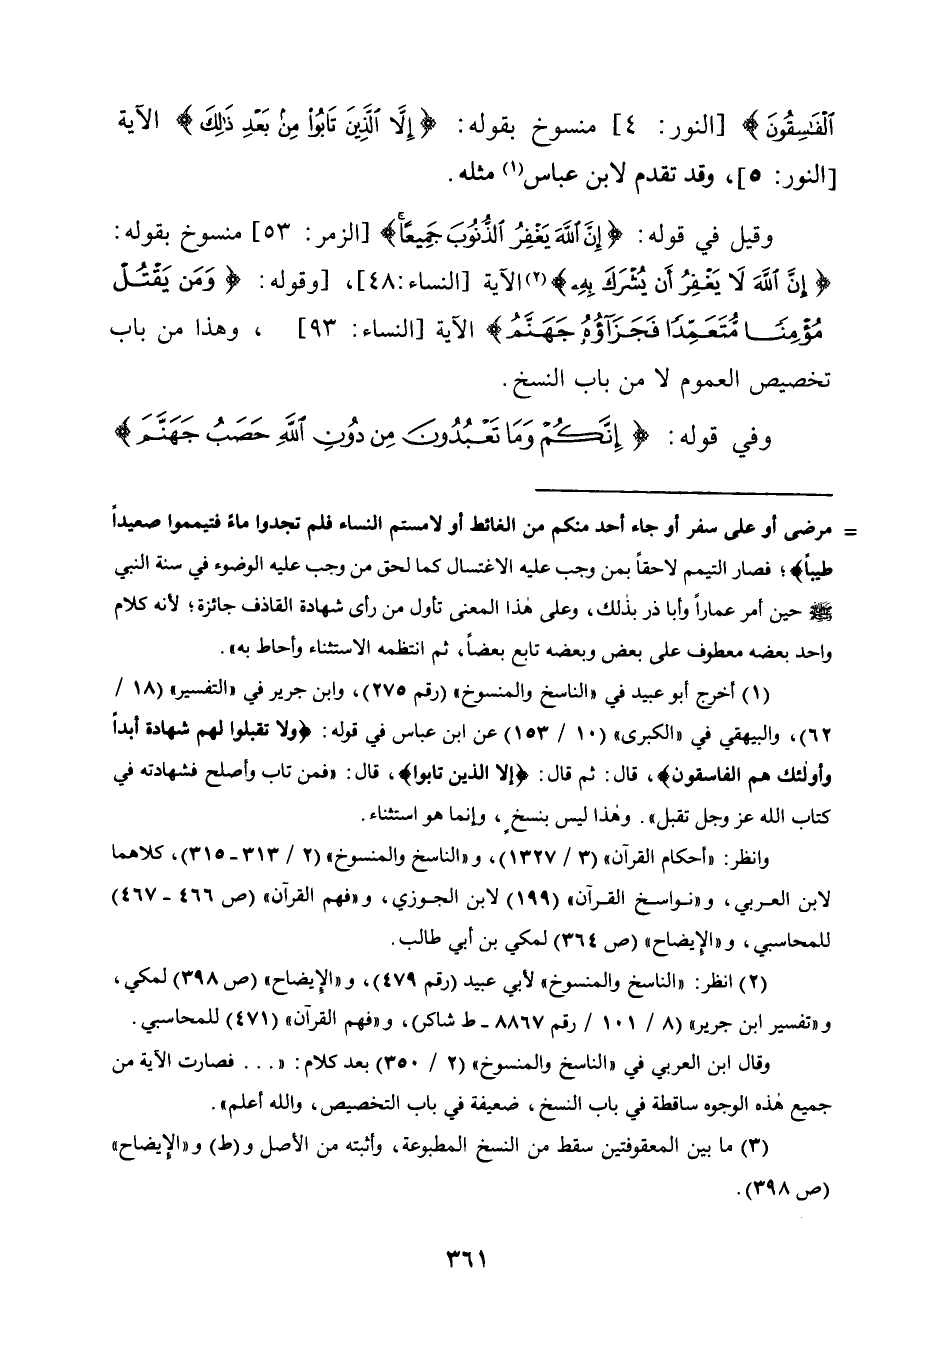 ٱلْفَٰسِقُونَ﴾ [النور: ٤] منسوخ بقوله: ﴿إِلَّا ٱلَّذِينَ تَابُوا۟ مِنۢ بَعْدِ ذَٰلِكَ﴾ الآية
[النور: ٥]، وقد تقدم لابن عباس(١) مثله.
وقيل في قوله: ﴿إِنَّ ٱللَّهَ يَغْفِرُ ٱلذُّنُوبَ جَمِيعًا ۚ﴾ [الزمر: ٥٣] منسوخ بقوله:
﴿إِنَّ ٱللَّهَ لَا يَغْفِرُ أَن يُشْرَكَ بِهِۦ﴾(٢) الآية [النساء: ٤٨]، [وقوله: ﴿وَمَن يَقْتُلْ
مُؤْمِنًا مُّتَعَمِّدًا فَجَزَآؤُهُۥ جَهَنَّمُ﴾ الآية [النساء: ٩٣] ، وهذا من باب
تخصيص العموم لا من باب النسخ.
وفي قوله: ﴿إِنَّكُمْ وَمَا تَعْبُدُونَ مِن دُونِ ٱللَّهِ حَصَبُ جَهَنَّمَ﴾
= مرضى أو على سفر أو جاء أحد منكم من الغائط أو لامستم النساء فلم تجدوا ماءً فتيمموا صعيداً
طيباً﴾؛ فصار التيمم لاحقاً بمن وجب عليه الاغتسال كما لحق من وجب عليه الوضوء في سنة النبي
ﷺ حين أمر عماراً وأبا ذر بذلك، وعلى هٰذا المعنى تأول من رأى شهادة القاذف جائزة؛ لأنه كلام
واحد بعضه معطوف على بعض وبعضه تابع بعضاً، ثم انتظمه الاستثناء وأحاط به».
(١) أخرج أبو عبيد في «الناسخ والمنسوخ» (رقم ٢٧٥)، وابن جرير في «التفسير» (١٨ /
٦٢)، والبيهقي في «الكبرى» (١٠ / ١٥٣) عن ابن عباس في قوله: ﴿ولا تقبلوا لهم شهادة أبداً
وأولٰئك هم الفاسقون﴾، قال: ثم قال: ﴿إلا الذين تابوا﴾، قال: «فمن تاب وأصلح فشهادته في
كتاب الله عز وجل تقبل». وهٰذا ليس بنسخٍ، وإنما هو استثناء.
وانظر: «أحكام القرآن» (٣ / ١٣٢٧)، و«الناسخ والمنسوخ» (٢ / ٣١٣ـ ٣١٥)، كلاهما
لابن العربي، و«نواسخ القرآن» (١٩٩) لابن الجوزي، و«فهم القرآن» (ص ٤٦٦ ـ ٤٦٧)
للمحاسبي، و«الإيضاح» (ص ٣٦٤) لمكي بن أبي طالب.
(٢) انظر: «الناسخ والمنسوخ» لأبي عبيد (رقم ٤٧٩)، و«الإيضاح» (ص ٣٩٨) لمكي،
و«تفسير ابن جرير» (٨ / ١٠١ / رقم ٨٨٦٧ ـ ط شاكر)، و«فهم القرآن» (٤٧١) للمحاسبي.
وقال ابن العربي في «الناسخ والمنسوخ» (٢ / ٣٥٠) بعد كلام: «... فصارت الآية من
جميع هٰذه الوجوه ساقطة في باب النسخ، ضعيفة في باب التخصيص، والله أعلم».
(٣) ما بين المعقوفتين سقط من النسخ المطبوعة، وأثبته من الأصل و(ط) و«الإيضاح»
(ص ٣٩٨).
٣٦١